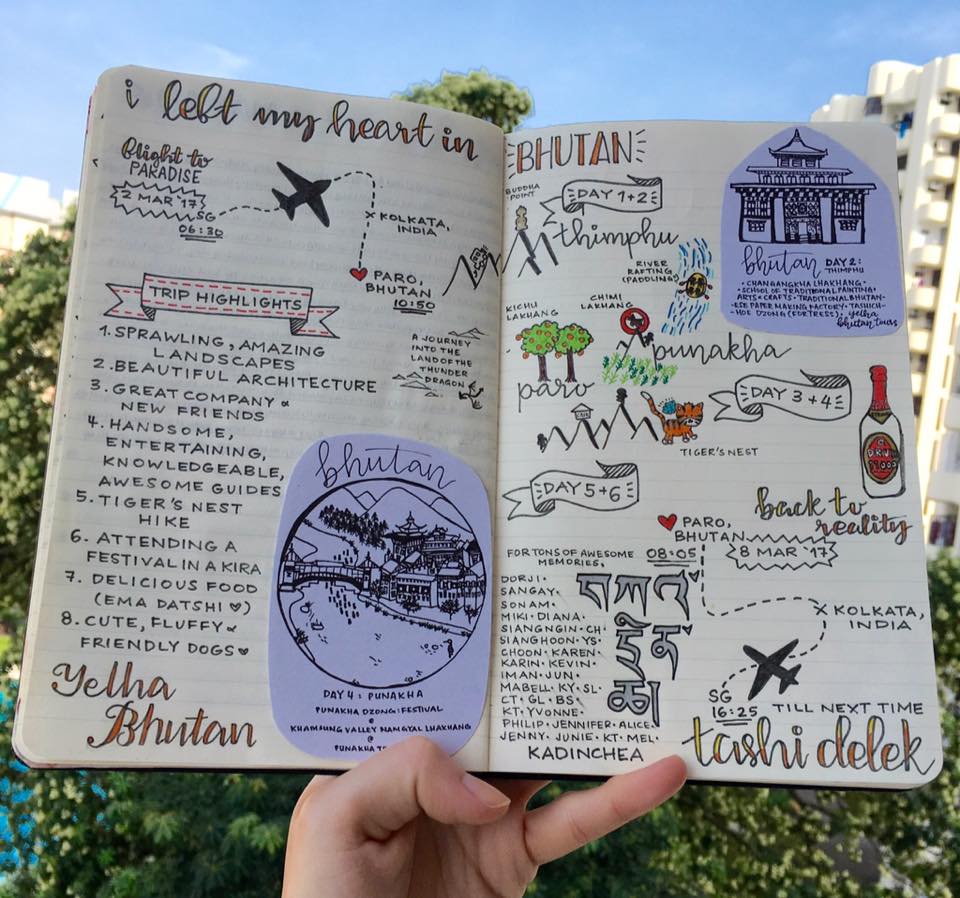 i left my heart in
flight to
PARADISE
2 MAR '17
SG
06:30
KOLKATA,
INDIA
PARO,
BHUTAN
10:50
TRIP HIGHLIGHTS
1. SPRAWLING, AMAZING
LANDSCAPES
2. BEAUTIFUL ARCHITECTURE
3. GREAT COMPANY &
NEW FRIENDS
4. HANDSOME,
ENTERTAINING,
KNOWLEDGEABLE,
AWESOME GUIDES
5. TIGER'S NEST
HIKE
6. ATTENDING A
FESTIVAL IN A KIRA
7. DELICIOUS FOOD
(EMA DATSHI ♡)
8. CUTE, FLUFFY &
FRIENDLY DOGS ♡
Yelha
Bhutan
A JOURNEY
INTO THE
LAND OF THE
THUNDER
DRAGON
bhutan
DAY 4: PUNAKHA
PUNAKHA DZONG: FESTIVAL
@
KHAMSUNG VALLEY NAMGYAL LHAKHANG
@
PUNAKHA
BHUTAN
BUDDHA
POINT
DAY 1+2
thimphu
RIVER
RAFTING
(PADDLING)
KICHU
LAKHANG
CHIMI
LAKHANG
punakha
paro
DAY 3+4
TIGER'S NEST
DAY 5+6
bhutan DAY 2:
THIMPHU
• CHANGANGKHA LHAKHANG •
• SCHOOL OF TRADITIONAL PAINTING,
ARTS + CRAFTS • TRADITIONAL BHUTAN-
-ESE PAPER MAKING FACTORY • TASHICH-
-HOE DZONG (FORTRESS) • yelha
bhutan tours
back to
reality
PARO,
BHUTAN
08:05
8 MAR '17
KOLKATA,
INDIA
SG
16:25
TILL NEXT TIME
tashi delek
FOR TONS OF AWESOME
MEMORIES,
DORJI •
SANGAY •
SONAM •
MIKI • DIANA •
SIANGNGIN • CH
SIANGHOON • YS •
CHOON • KAREN •
KARIN • KEVIN •
IMAN • JUN •
MABELL • KY • SL •
CT • GL • BS •
KT • YVONNE •
PHILIP • JENNIFER • ALICE •
JENNY • JUNIE • KT • MEL •
KADINCHEA
བཀའ་
དྲིན་
ཆེ